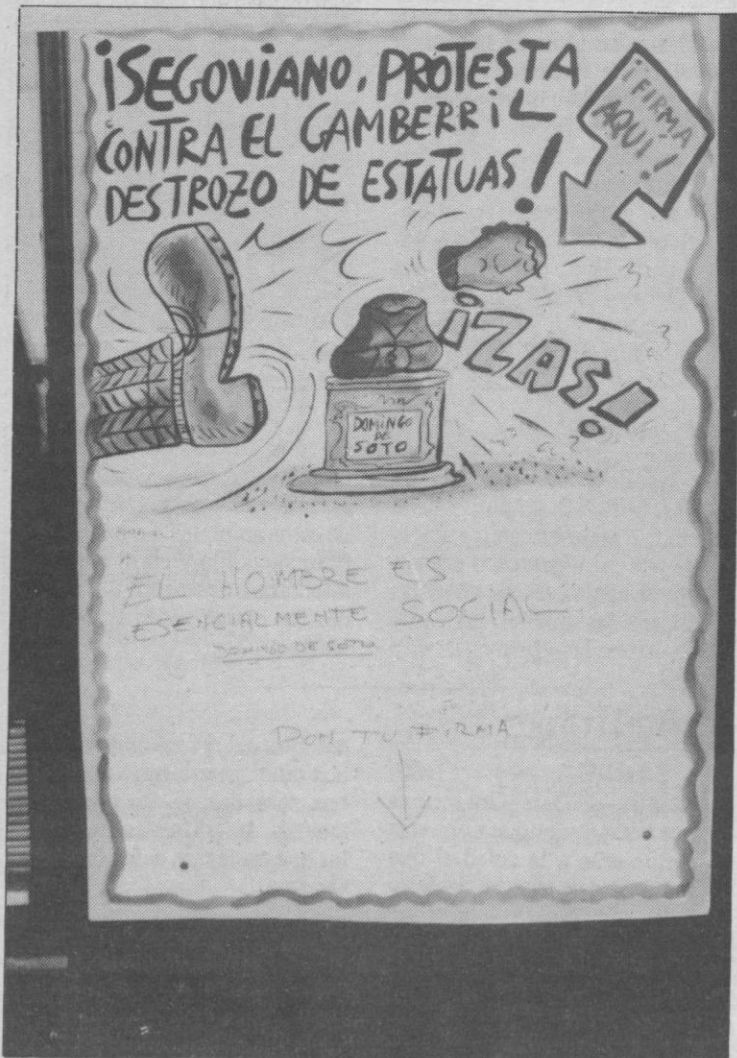 ¡SEGOVIANO, PROTESTA
CONTRA EL GAMBERRIL
DESTROZO DE ESTATUAS!
¡FIRMA
AQUI!
¡ZAS!
DOMINGO
DE
SOTO
EL HOMBRE ES
ESENCIALMENTE SOCIAL
DOMINGO DE SOTO
PON TU FIRMA